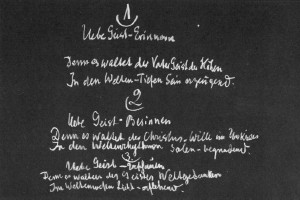 1
Uebe Geist-Erinnern
Denn es waltet der Vater-Geist der Höhen
In den Welten-Tiefen Sein-erzeugend.
2
Uebe Geist-Besinnen
Denn es waltet der Christus-Wille im Umkreis
In den Weltenrhythmen Seelen-begnadend
3
Uebe Geist-Erschauen
Denn es walten des Geistes Weltgedanken
Im Weltenwesen Licht-erflehend.